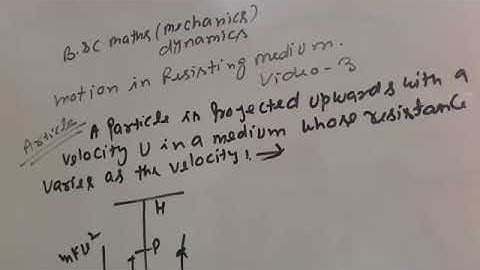 B.SC maths (mechanics)
dynamics
motion in Resisting medium.
Video-3
Article A Particle is Projected upwards with a
velocity U in a medium whose resistance
varies as the velocity.→
H
P
mKv²